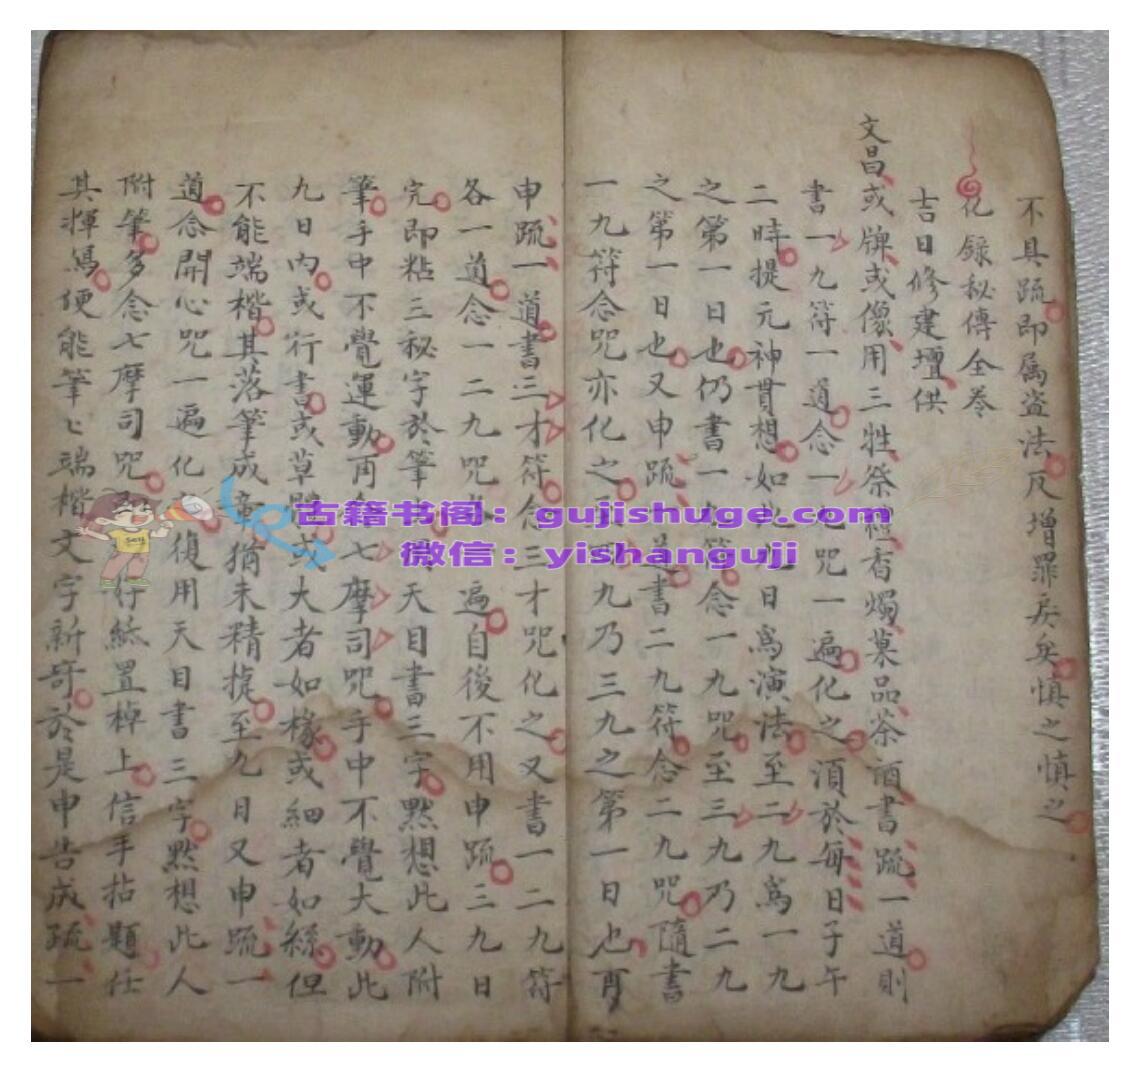 不具疏即属盗法反增罪戾矣慎之慎之
化録秘傳全卷
吉日修建壇供
文昌或牌或像用三牲祭禮香燭菓品茶酒書疏一道則
書一九符一道念一九咒一遍化之須於每日子午
二時提元神貫想如此九日爲演法至二九爲一九
之第一日也仍書一九符念一九咒至三九乃二九
之第一日也又申疏一道書二九符念二九咒隨書
一九符念咒亦化之至四九乃三九之第一日也
申疏一道書三才符念三才咒化之又書一二九符
各一道念一二九咒各一遍自後不用申疏三九日
完即粘三秘字於筆天目書三字黙想此人附
筆手中不覺運動再念七摩司咒手中不覺大動此
九日内或行書或草體或大者如椽或細者如絲但
不能端楷其落筆成章猶未精㨗至九日又申疏一
道念開心咒一遍化復用天目書三字黙想此人
附筆多念七摩司咒紙置棹上信手拈題任
其揮寫便能筆〻端楷文字新奇於是申告成疏一
古籍书阁：gujishuge.com
微信：yishanguji